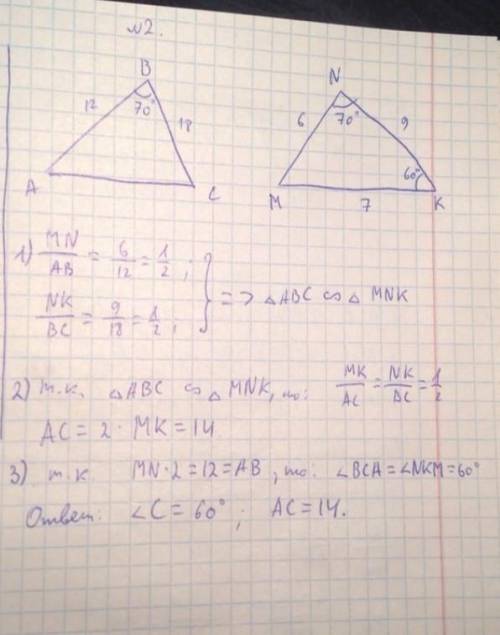 №2.
B
12
70°
18
A
C
N
6
70°
9
60°
M
7
K
1) MN/AB = 6/12 = 1/2 ;
NK/BC = 9/18 = 1/2 ; } => △ABC ∽ △MNK
2) т.к. △ABC ∽ △MNK, то: MK/AC = NK/AC = 1/2
AC = 2 · MK = 14.
3) т.к. MN·2 = 12 = AB, то: ∠BCA = ∠NKM = 60°
Ответ: ∠C = 60° ; AC = 14.